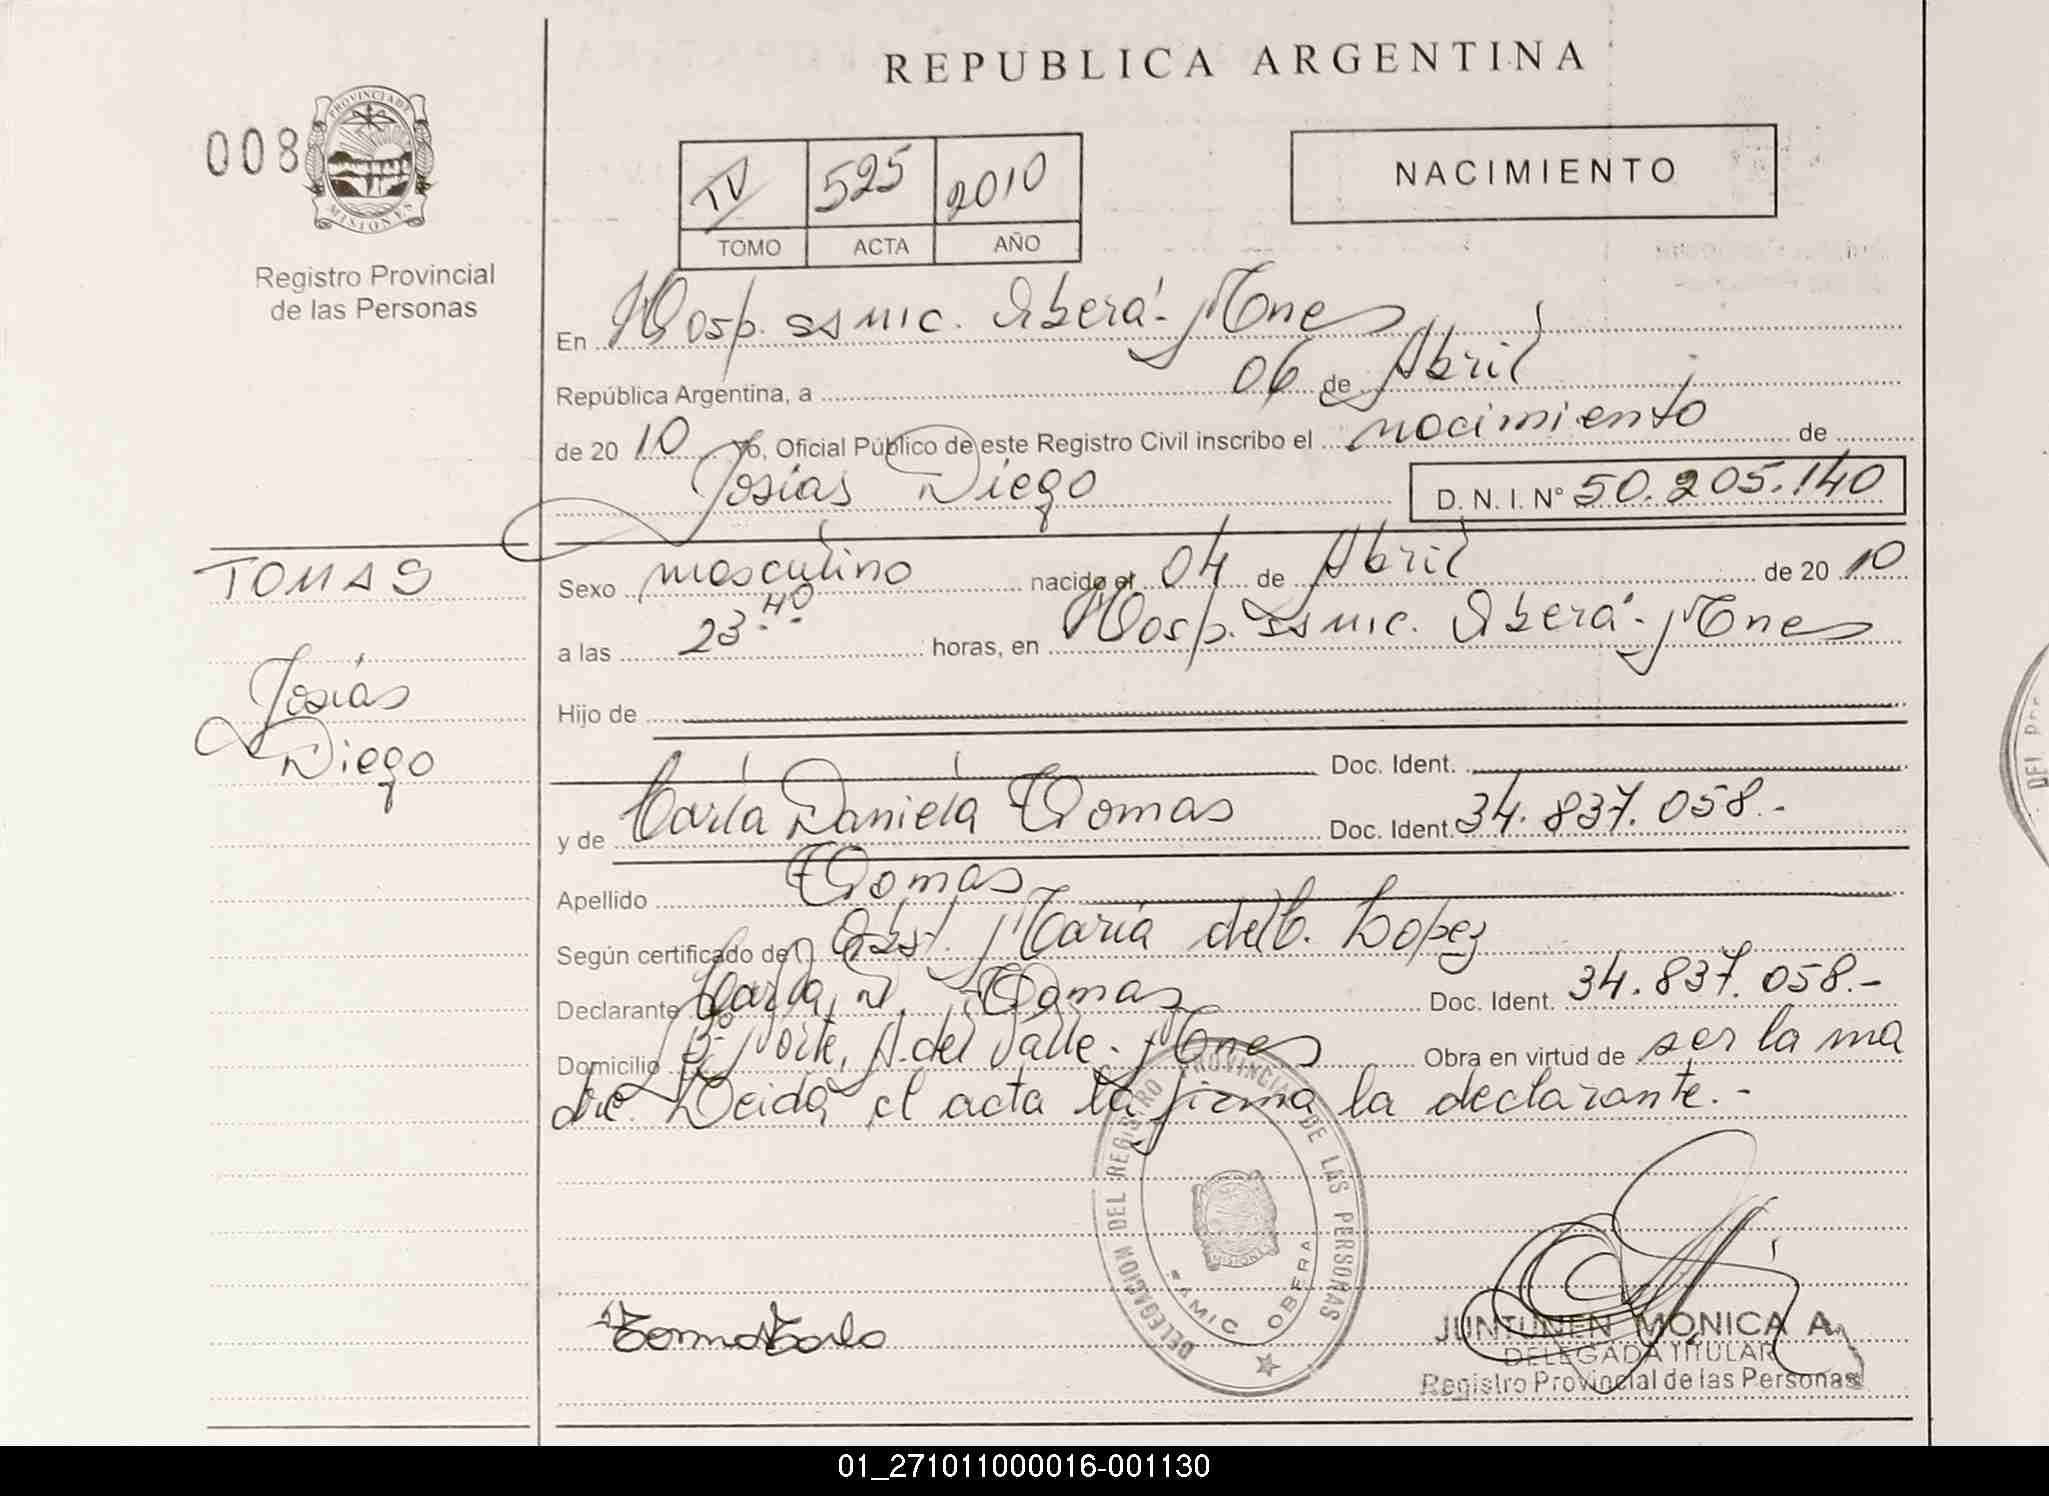 REPUBLICA ARGENTINA
008
PROVINCIA DE MISIONES
Registro Provincial
de las Personas
NACIMIENTO
IV 525 2010
TOMO ACTA AÑO
En Hosp. SSMIC. Oberá - Mnes
República Argentina, a 06 de Abril
de 20 10 Yo, Oficial Público de este Registro Civil inscribo el nacimiento de
Josías Diego D. N. I. N° 50.205.140
TOMAS
Josías
Diego
Sexo masculino nacido el 04 de Abril de 20 10
a las 23.40 horas, en Hosp. SSMIC. Oberá - Mnes
Hijo de
Doc. Ident.
y de Carla Daniela Tomas Doc. Ident. 34.837.058.-
Apellido Tomas
Según certificado de Obst. María del C. Lopez
Declarante Carla D. Tomas Doc. Ident. 34.837.058.-
Domicilio Bº Norte, A. del Valle - Mnes Obra en virtud de ser la ma
dre. Leida el acta la firma la declarante.-
DELEGACION DEL REGISTRO PROVINCIAL DE LAS PERSONAS
SAMIC OBERA
MISIONES
Tomas Carla
JUNTUNEN MONICA A.
DELEGADA TITULAR
Registro Provincial de las Personas
DEL
01_271011000016-001130